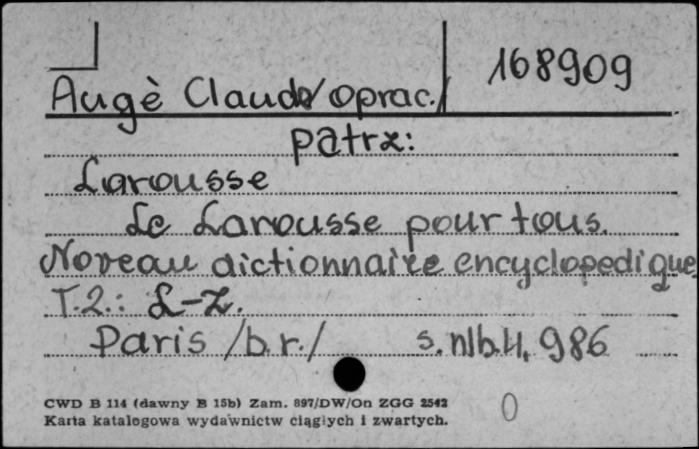 168909
Augè Claude/oprac./
patrz:
Larousse
Le Larousse pour tous.
Noveau dictionnaire encyclopedique
T.2.: L-Z.
Paris /b.r./ s. nlb.4, 986
CWD B 114 (dawny B 15b) Zam. 897/DW/On ZGG 2542
Karta katalogowa wydawnictw ciągłych i zwartych.
0